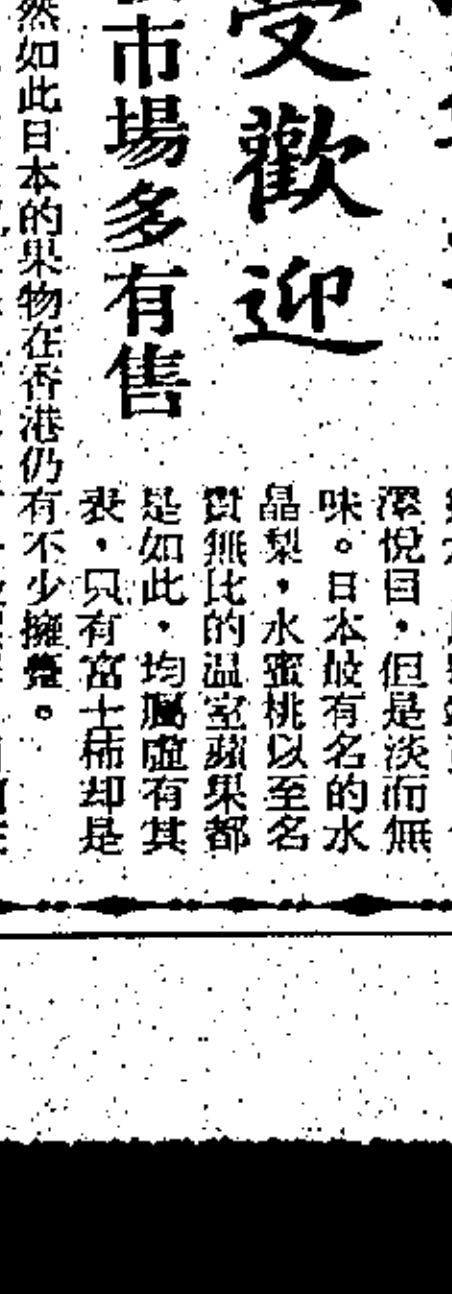 受歡迎
市場多有售
潔悅目，但是淡而無
味。日本最有名的水
晶梨，水蜜桃以至名
貴無比的温室蘋果都
是如此，均屬虛有其
表，只有富士柿却是
然如此日本的果物在香港仍有不少擁躉。